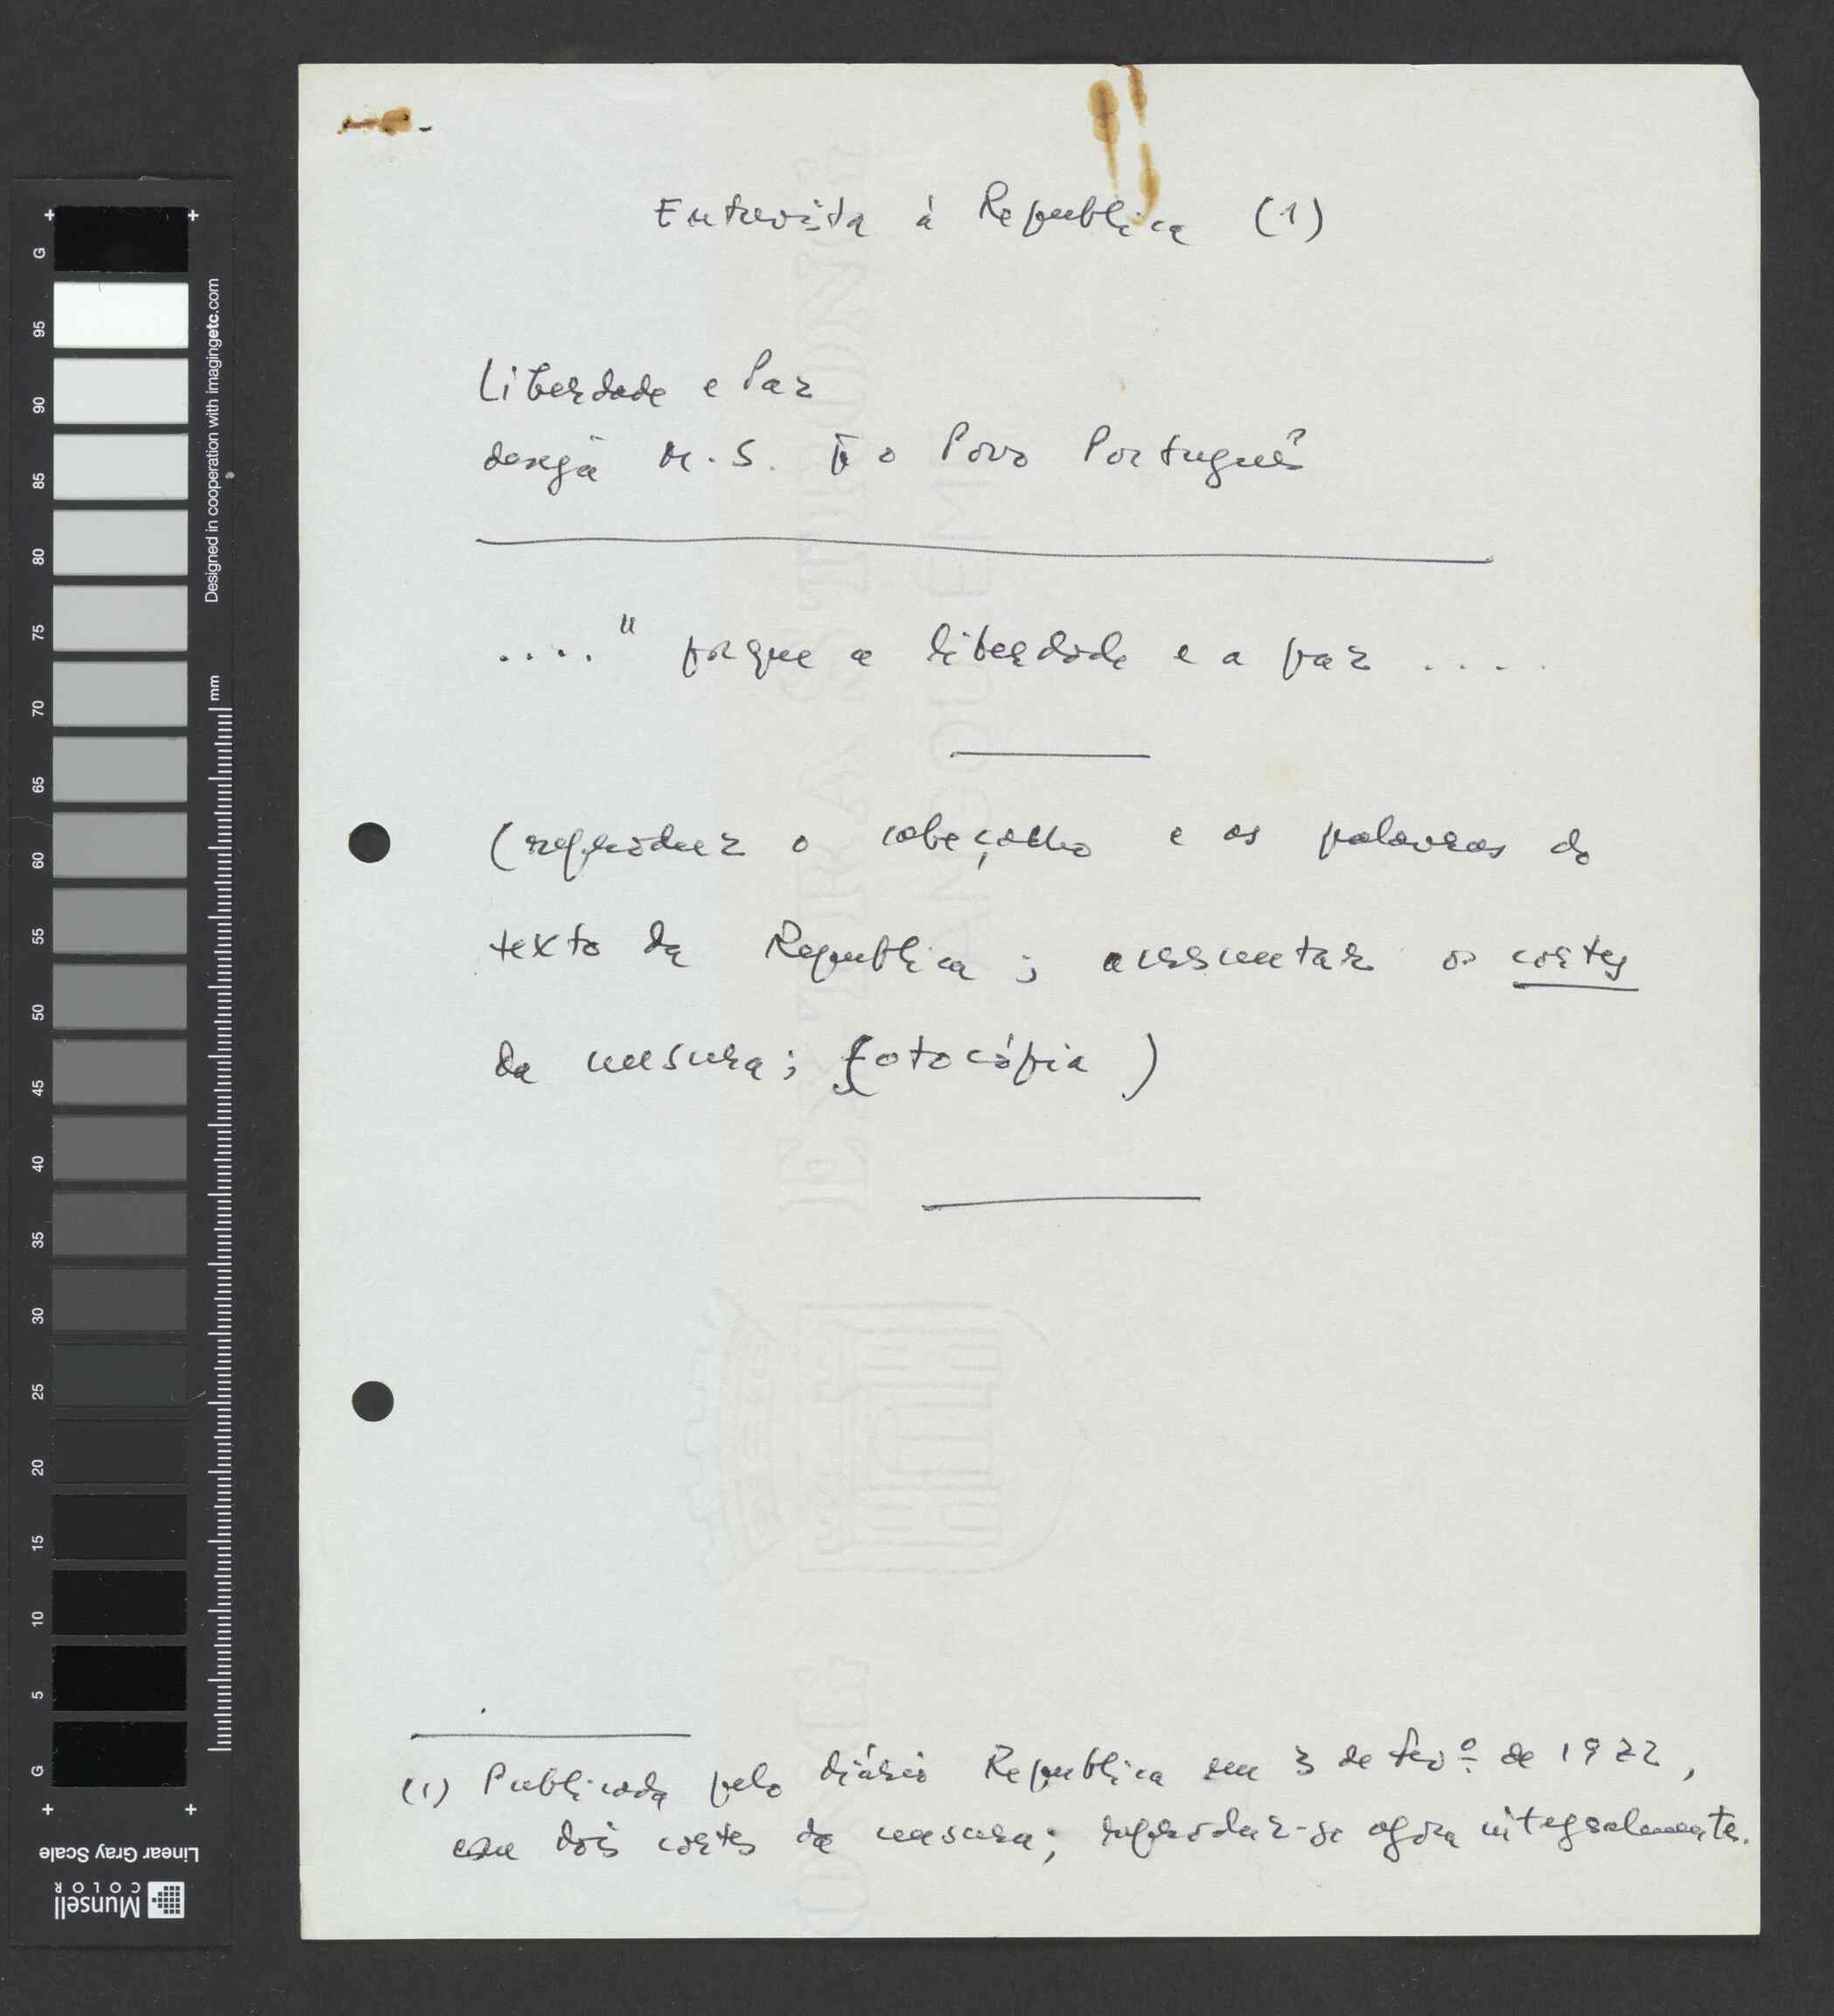 Entrevista à Republica (1)
Liberdade e Paz
deseja M. S. o Povo Português
...." porque a liberdade e a paz ....
(reproduzir o cabeçalho e as palavras do
texto da Republica; acrescentar os cortes
da censura; fotocópia)
(1) Publicada pelo diário Republica em 3 de Fevº de 1972,
com dois cortes da censura; reproduz-se agora integralmente.
G
95
90
85
80
75
70
65
60
55
50
45
40
35
30
25
20
15
10
5
G
mm
Designed in cooperation with imagingetc.com
Linear Gray Scale
Munsell
COLOR